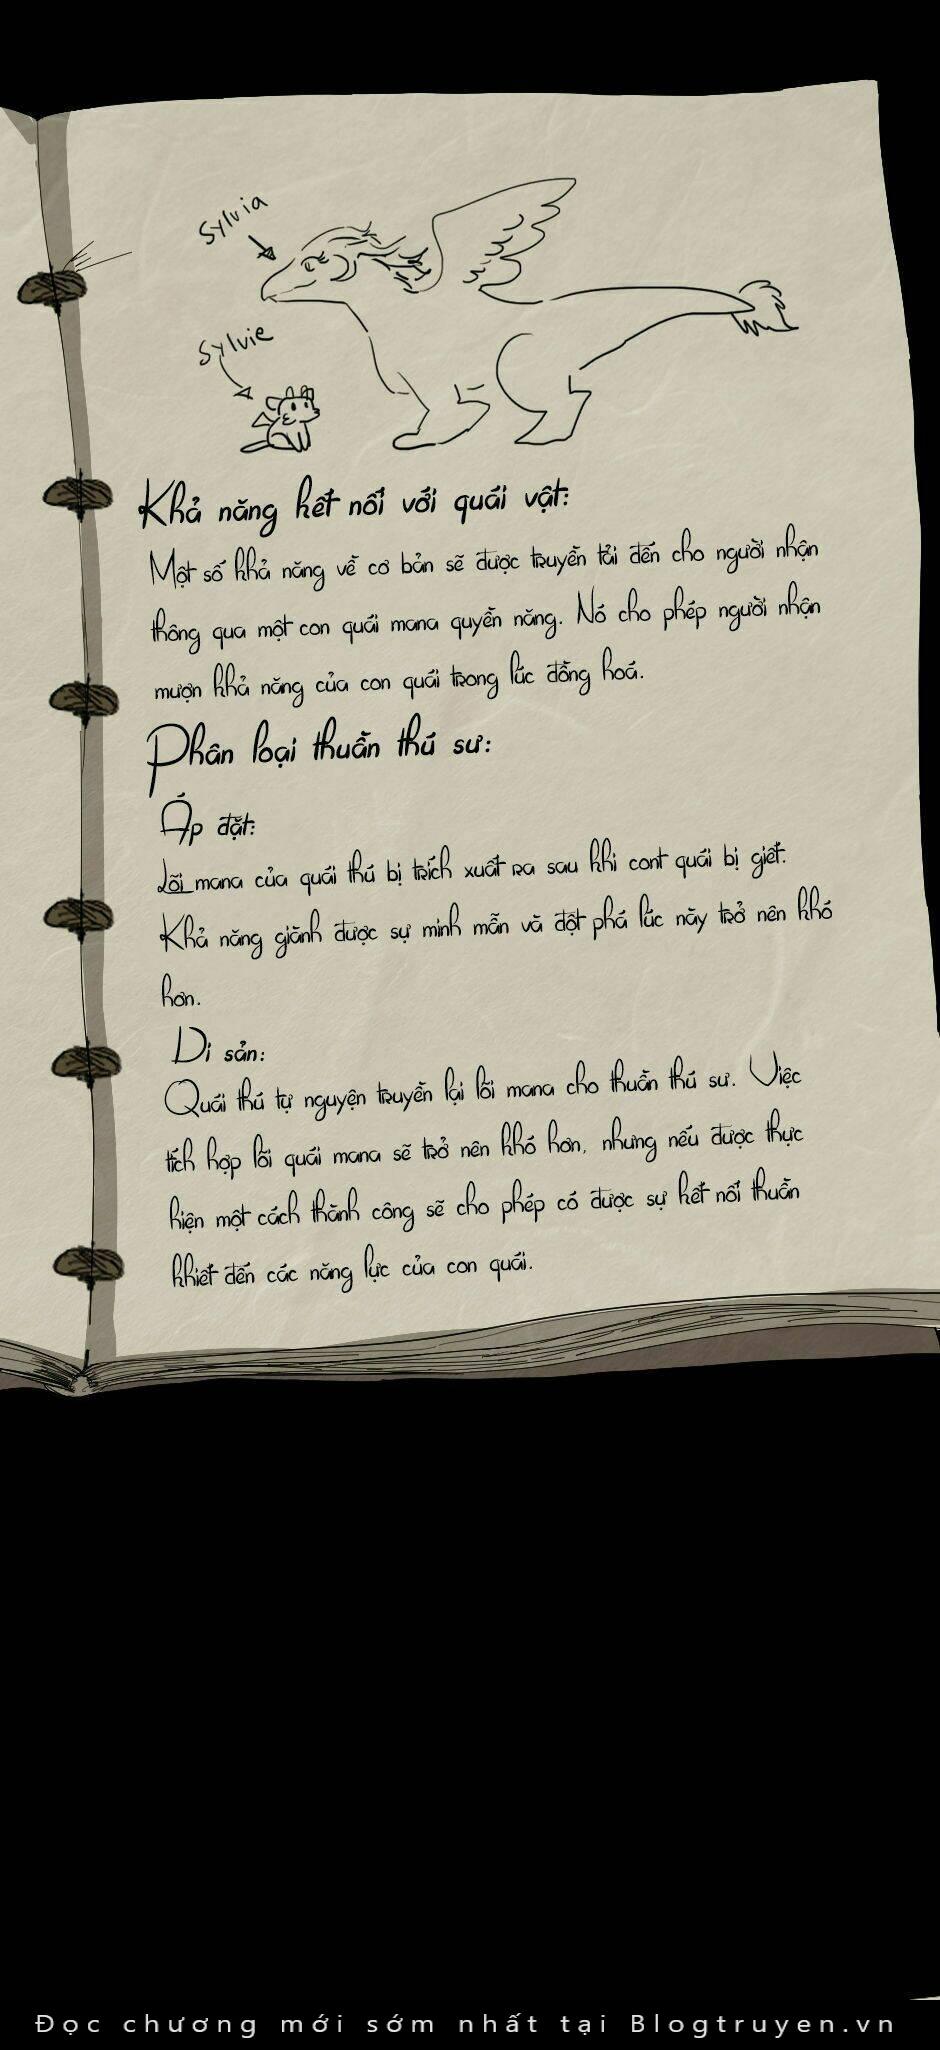 Sylvia
Sylvie
Khả năng kết nối với quái vật:
Một số khả năng về cơ bản sẽ được truyền tải đến cho người nhận
thông qua một con quái mana quyền năng. Nó cho phép người nhận
mượn khả năng của con quái trong lúc đồng hoá.
Phân loại thuần thú sư:
Áp đặt:
Lõi mana của quái thú bị trích xuất ra sau khi cont quái bị giết.
Khả năng giành được sự minh mẫn và đột phá lúc này trở nên khó
hơn.
Di sản:
Quái thú tự nguyện truyền lại lõi mana cho thuần thú sư. Việc
tích hợp lõi quái mana sẽ trở nên khó hơn, nhưng nếu được thực
hiện một cách thành công sẽ cho phép có được sự kết nối thuần
khiết đến các năng lực của con quái.
Đọc chương mới sớm nhất tại Blogtruyen.vn